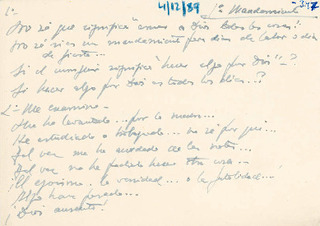 4/12/89 1º Mandamiento -342
1º-
No sé qué significa "amar a Dios sobre todas las cosas"!
No sé si es un mandamiento para días de labor o días
de fiesta...
Si el cumplirlo significa "hacer algo por Dios"..?
Si hacer algo por Dios es todos los días..?
2º- Me examino-
Me he levantado... por lo menos...
He estudiado o trabajado... no sé por qué...
Tal vez me he acordado de las notas...
Tal vez no he podido hacer otra cosa...
El egoísmo, la vanidad... o la futilidad...!
Algo han pesado...
¡Dios ausente!